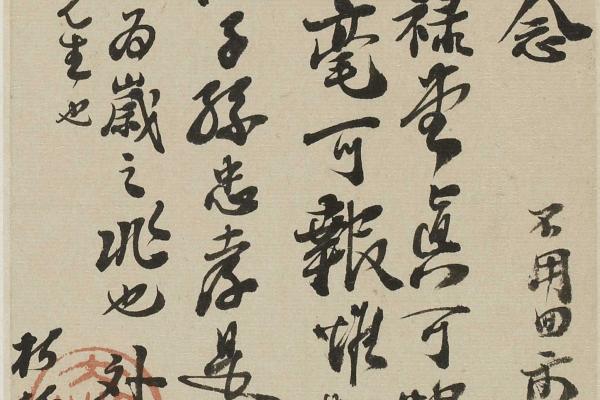 念
不用田
祿真可
毫可報惟
子孫忠孝是
為歲之兆也
先生也